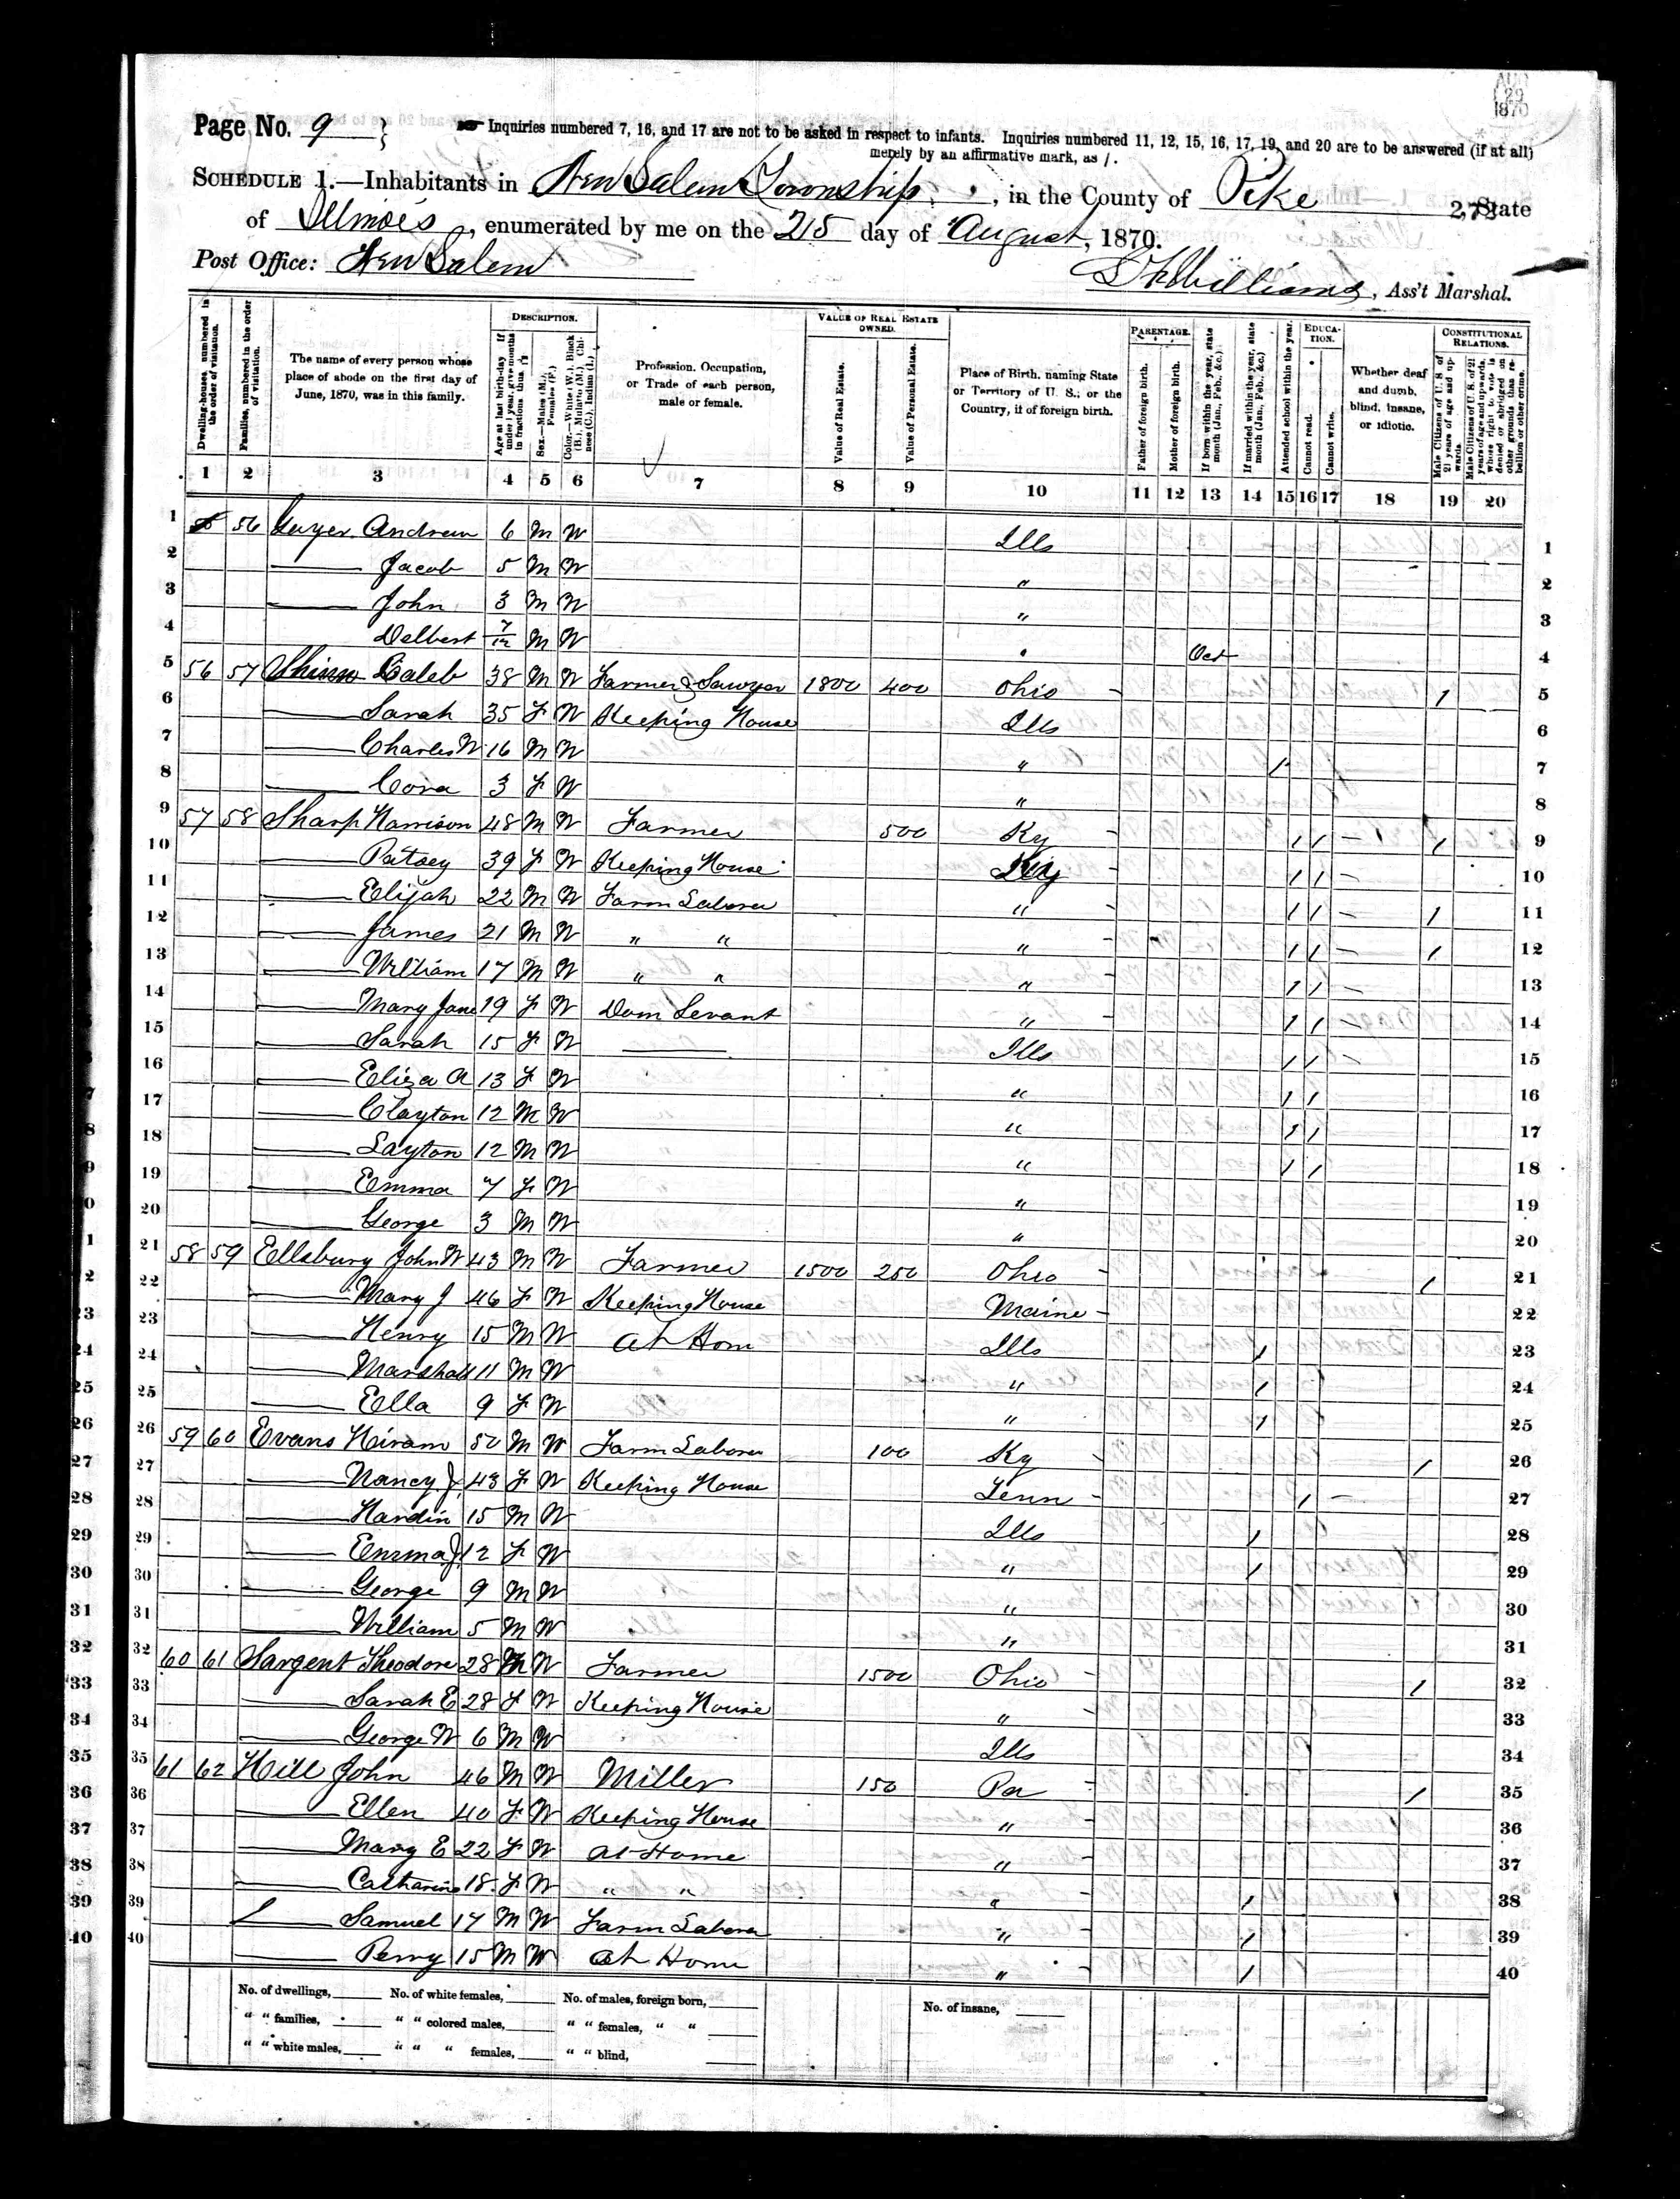 AUG 29 1870
Page No. 9 } Inquiries numbered 7, 16, and 17 are not to be asked in respect to infants. Inquiries numbered 11, 12, 15, 16, 17, 19, and 20 are to be answered (if at all)
merely by an affirmative mark, as /.
SCHEDULE 1.—Inhabitants in New Salem Township, in the County of Pike, State
of Illinois, enumerated by me on the 25 day of August, 1870.
Post Office: New Salem
Williams, Ass't Marshal.
Dwelling-houses, numbered in the order of visitation.
Families, numbered in the order of visitation.
The name of every person whose place of abode on the first day of June, 1870, was in this family.
DESCRIPTION.
Age at last birth-day. If under 1 year, give months in fractions, thus
Sex.—Males (M.), Females (F.)
Color.—White (W.), Black (B.), Mulatto (M.), Chinese (C.), Indian (I.)
Profession, Occupation, or Trade of each person, male or female.
VALUE OF REAL ESTATE OWNED.
Value of Real Estate.
Value of Personal Estate.
Place of Birth, naming State or Territory of U. S.; or the Country, if of foreign birth.
PARENTAGE.
Father of foreign birth.
Mother of foreign birth.
If born within the year, state month (Jan., Feb., &c.)
If married within the year, state month (Jan., Feb., &c.)
Attended school within the year.
EDUCATION.
Cannot read.
Cannot write.
Whether deaf and dumb, blind, insane, or idiotic.
CONSTITUTIONAL RELATIONS.
Male Citizens of U. S. of 21 years of age and upwards.
Male Citizens of U. S. of 21 years of age and upwards, whose right to vote is denied or abridged on other grounds than rebellion or other crime.
1 2 3 4 5 6 7 8 9 10 11 12 13 14 15 16 17 18 19 20
1 56 Andrew 6 M W Ills 1
2 Jacob 5 M W " 2
3 John 3 M W " 3
4 Delbert 7/12 M W " Oct 4
5 56 57 Shinn Caleb 38 M W Farmer & Sawyer 1800 400 Ohio 1 5
6 Sarah 35 F W Keeping House Ills 6
7 Charles W 16 M W " 1 7
8 Cora 3 F W " 8
9 57 58 Sharp Harrison 48 M W Farmer 500 Ky 1 1 1 9
10 Patsey 39 F W Keeping House Ky 1 1 10
11 Elijah 22 M W Farm Laborer " 1 1 1 11
12 James 21 M W " " " 1 1 1 12
13 William 17 M W " " " 1 1 13
14 Mary Jane 19 F W Dom Servant " 1 1 14
15 Sarah 15 F W Ills 1 1 15
16 Eliza A 13 F W " 1 1 16
17 Clayton 12 M W " 1 1 17
18 Layton 12 M W " 1 1 18
19 Emma 7 F W " 19
20 George 3 M W " 20
21 58 59 Ellsbury John W 43 M W Farmer 1500 250 Ohio 1 21
22 Mary J 46 F W Keeping House Maine 22
23 Henry 15 M W At Hom Ills 1 23
24 Marshall 11 M W " 1 24
25 Ella 9 F W " 1 25
26 59 60 Evans Hiram 50 M W Farm Laborer 100 Ky 1 26
27 Nancy J 43 F W Keeping House Tenn 1 27
28 Hardin 15 M W Ills 1 28
29 Emma J 12 F W " 1 29
30 George 9 M W " 30
31 William 5 M W " 31
32 60 61 Sargent Theodore 28 M W Farmer 1500 Ohio 1 32
33 Sarah E 28 F W Keeping House " 33
34 George W 6 M W Ills 34
35 61 62 Hill John 46 M W Miller 150 Pa 1 35
36 Ellen 40 F W Keeping House " 36
37 Mary E 22 F W At Home " 37
38 Catharine 18 F W " " " 1 38
39 Samuel 17 M W Farm Laborer " 1 39
40 Perry 15 M W At Home " 1 40
No. of dwellings, No. of white females, No. of males, foreign born, No. of insane,
" " families, " " colored males, " " females, " "
" " white males, " " " females, " " blind,